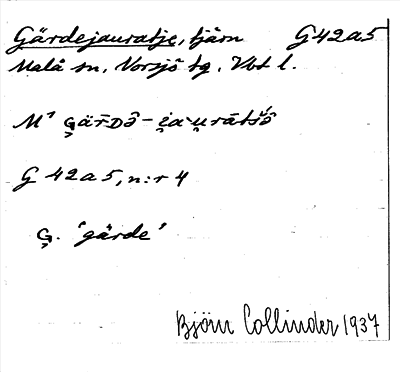 Gärdejauratje, tjärn G42a5
Malå sn, Norsjö tg. Vbt l.
M¹
G 42a5, n:r 4
G. 'gärde'
Björn Collinder 1937